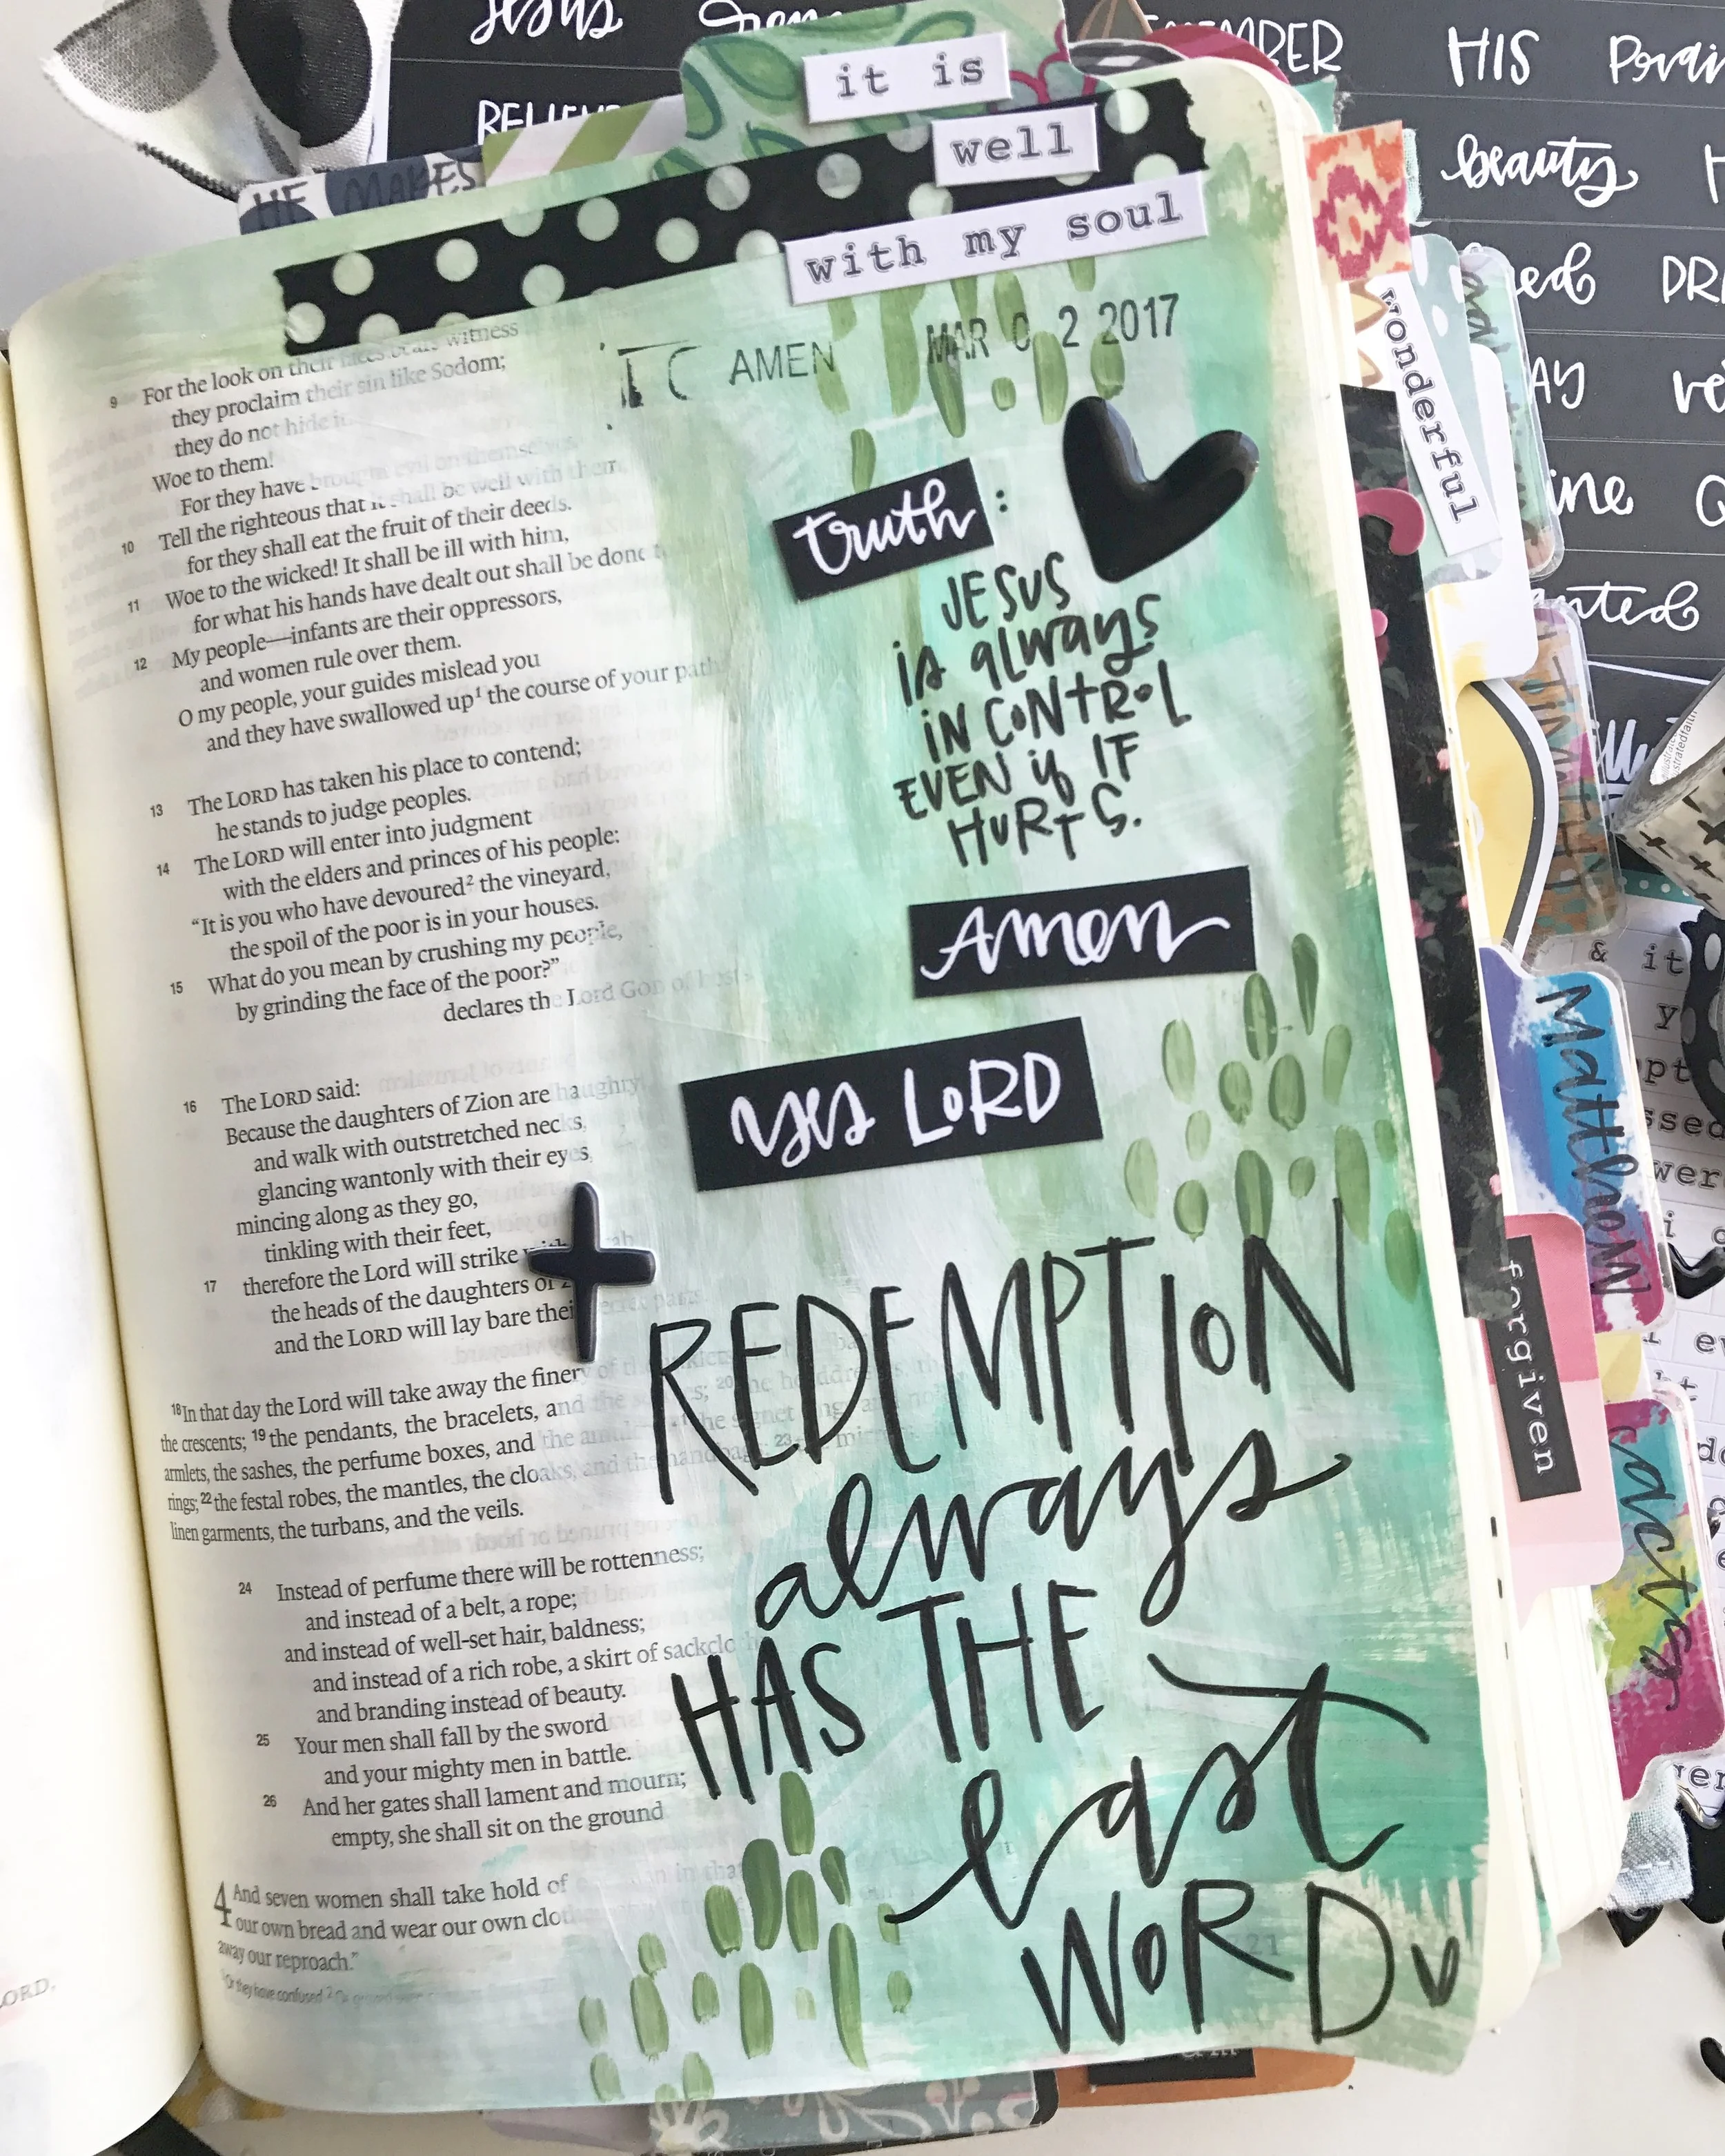 Jesus
HIS
BELIEVE
beauty
HE MAKES
it is
well
with my soul
AMEN MAR 0 2 2017
truth:
JESUS
is always
IN CONTROL
EVEN if IT
HURTS.
Amen
yes LORD
REDEMPTION
always
HAS THE
last
WORD
9 For the look on their faces bears witness
they proclaim their sin like Sodom;
they do not hide it.
Woe to them!
For they have brought evil on themselves.
10 Tell the righteous that it shall be well with them,
for they shall eat the fruit of their deeds.
11 Woe to the wicked! It shall be ill with him,
for what his hands have dealt out shall be done
12 My people—infants are their oppressors,
and women rule over them.
O my people, your guides mislead you
and they have swallowed up¹ the course of your path
13 The LORD has taken his place to contend;
he stands to judge peoples.
14 The LORD will enter into judgment
with the elders and princes of his people:
“It is you who have devoured² the vineyard,
the spoil of the poor is in your houses.
15 What do you mean by crushing my people,
by grinding the face of the poor?”
declares the Lord GOD of hosts
16 The LORD said:
Because the daughters of Zion are haughty
and walk with outstretched necks,
glancing wantonly with their eyes,
mincing along as they go,
tinkling with their feet,
17 therefore the Lord will strike
the heads of the daughters of
and the LORD will lay bare their secret parts.
18 In that day the Lord will take away the finery of the
the crescents; 19 the pendants, the bracelets, and the
armlets, the sashes, the perfume boxes, and the
rings; 22 the festal robes, the mantles, the cloaks, and the handbags; 23
linen garments, the turbans, and the veils.
24 Instead of perfume there will be rottenness;
and instead of a belt, a rope;
and instead of well-set hair, baldness;
and instead of a rich robe, a skirt of
and branding instead of beauty.
25 Your men shall fall by the sword
and your mighty men in battle.
26 And her gates shall lament and mourn;
empty, she shall sit on the ground
4 And seven women shall take hold of
our own bread and wear our own
away our reproach.”
¹ Or they have confused
LORD,
wonderful
Matthew
forgiven
acts